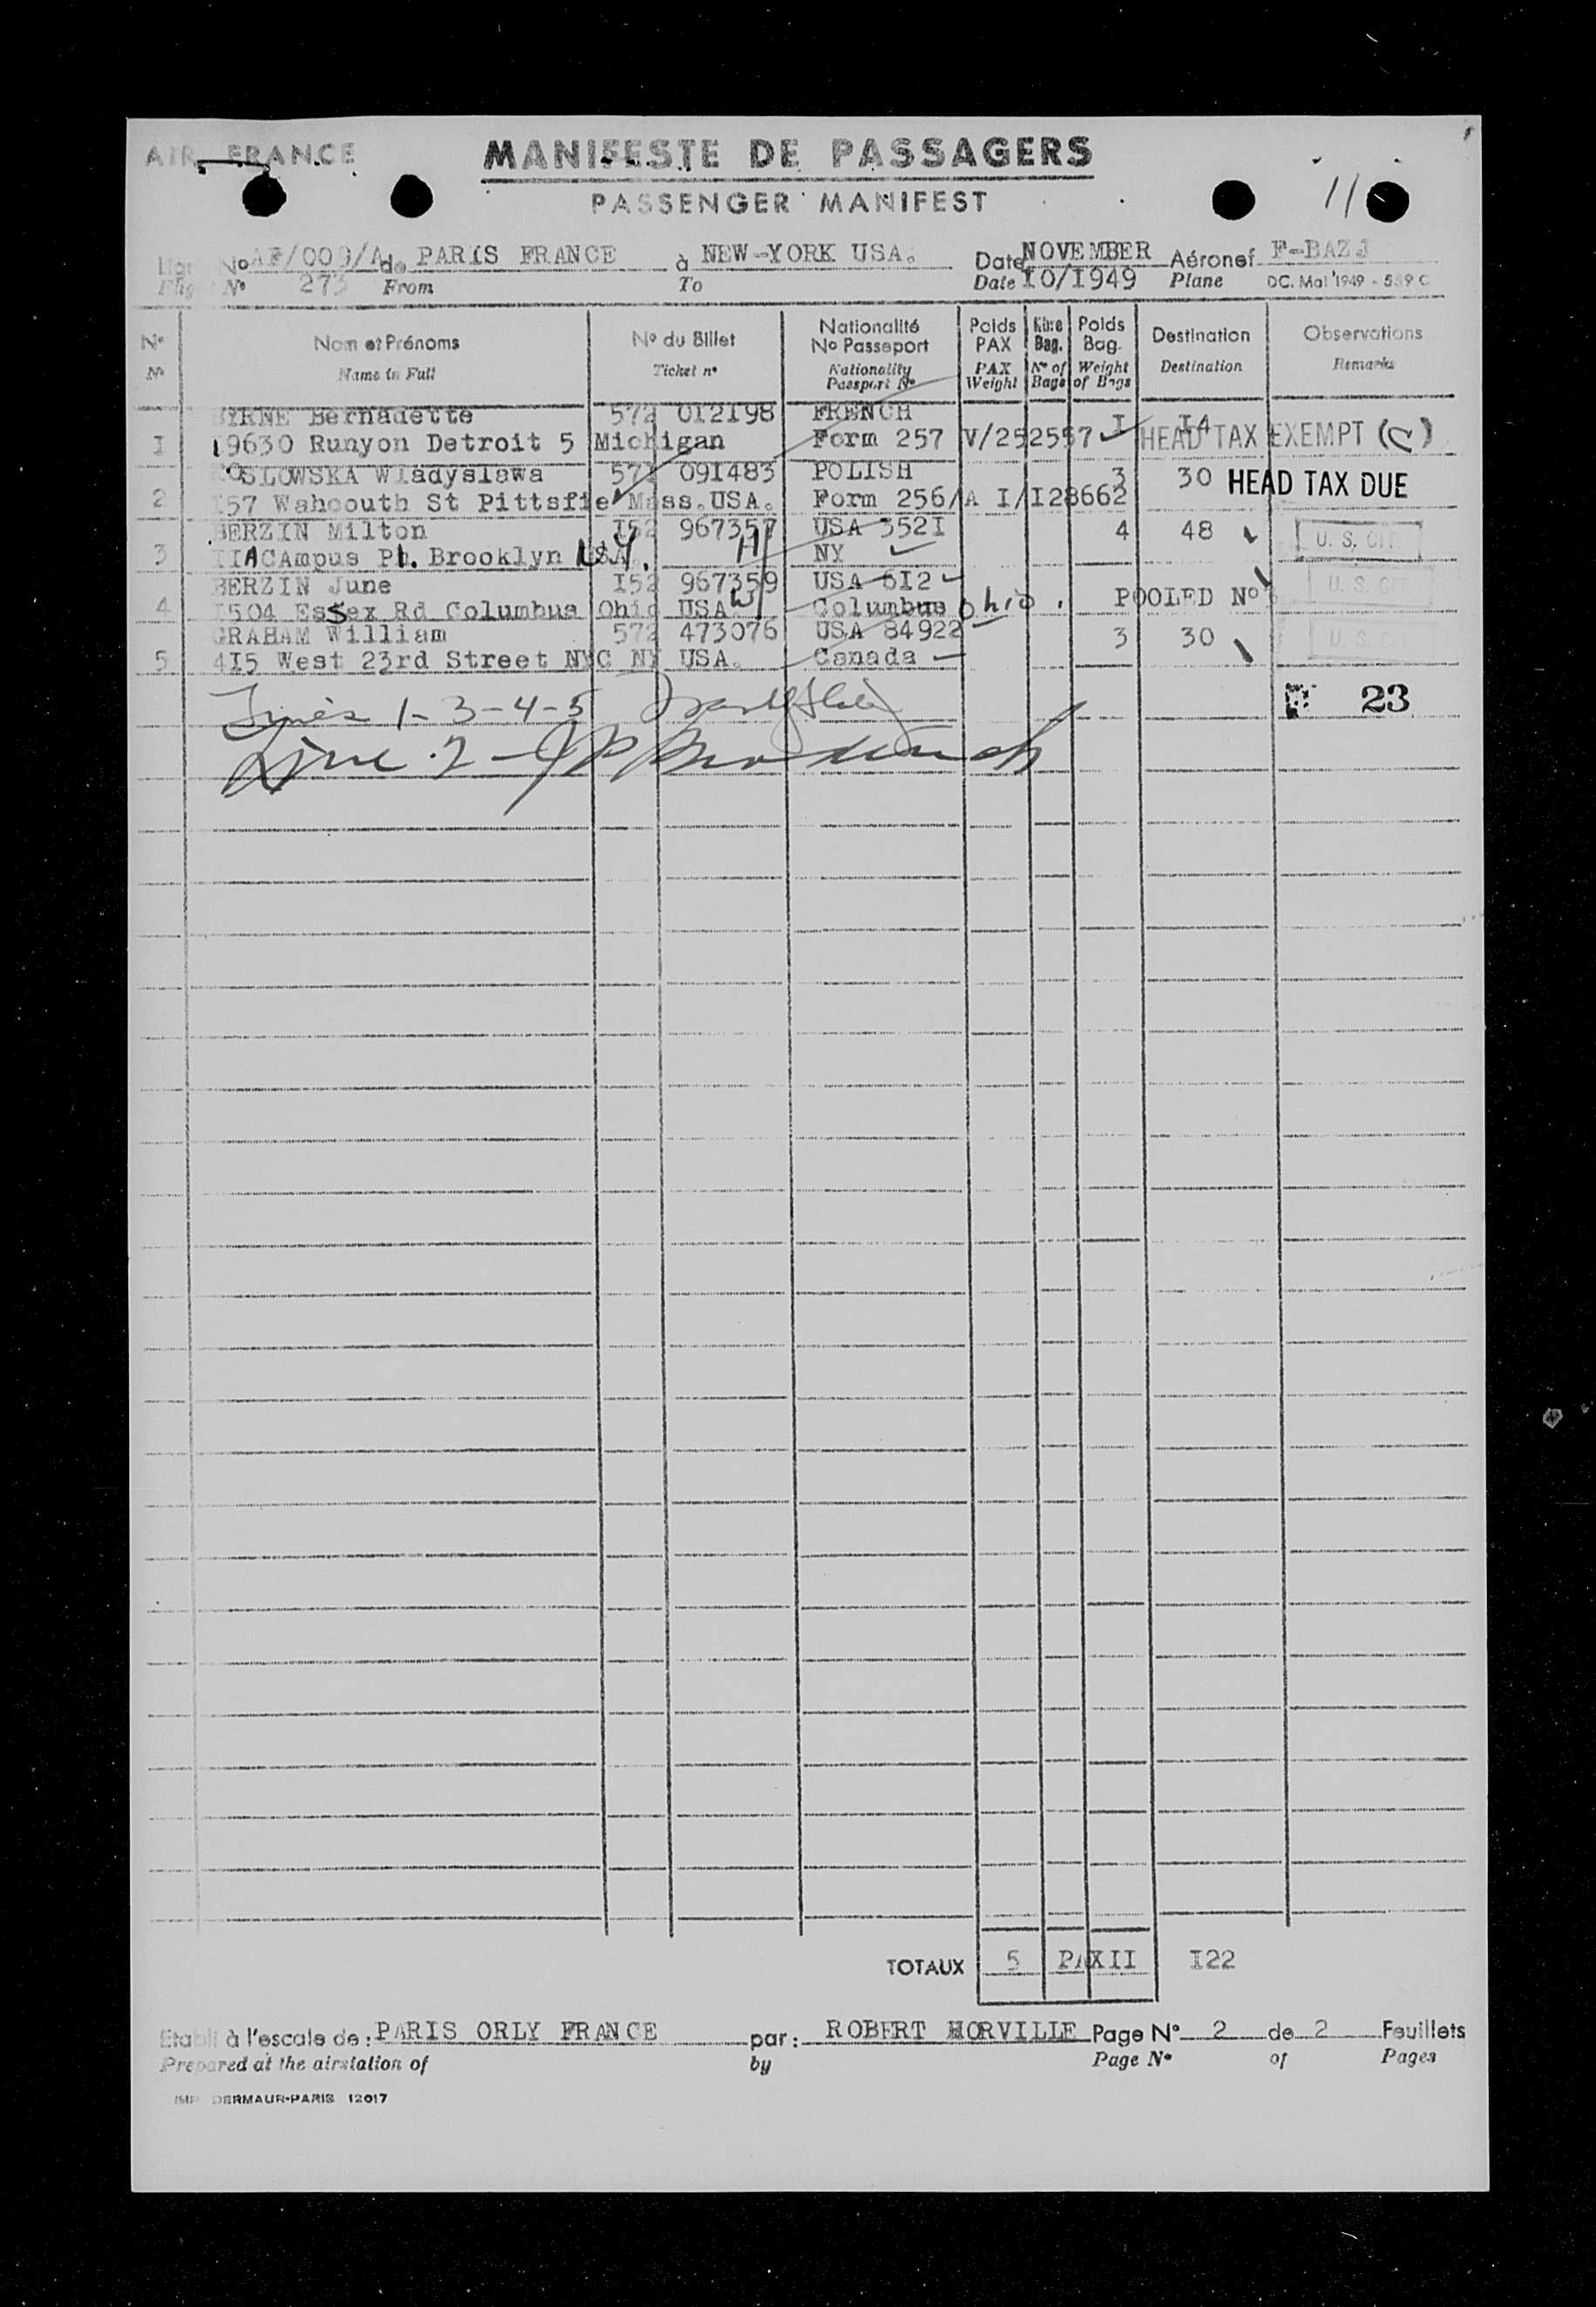 AIR FRANCE
MANIFESTE DE PASSAGERS
PASSENGER MANIFEST
11
No AF/009/A de PARIS FRANCE à NEW-YORK USA. Date NOVEMBER Aéronef F-BAZJ
No 273 From To Date IO/I949 Plane DC. Mai 1949 - 559 C
No Nom et Prénoms No du Billet Nationalité No Passeport Poids PAX Nbre Bag. Poids Bag. Destination Observations
No Name in Full Ticket no Nationality Passport No PAX Weight No of Bags Weight of Bags Destination Remarks
BYRNE Bernadette 572 012I98 FRENCH I I4
I 19630 Runyon Detroit 5 Michigan Form 257 V/252557 HEAD TAX EXEMPT (C)
KOSLOWSKA Wladyslawa 572 09I483 POLISH 3 30 HEAD TAX DUE
2 I57 Wahcouth St Pittsfie Mass.USA. Form 256/A I/I28662
BERZIN Milton I52 967357 USA 352I 4 48 U. S. CIT.
3 IIACAmpus Pl. Brooklyn USA. H NY
BERZIN June I52 967359 USA 6I2 POOLED No U. S. CIT
4 I504 Essex Rd Columbus Ohio USA W Columbus Ohio.
GRAHAM William 572 473076 USA 84922 3 30 U. S. CIT
5 4I5 West 23rd Street NYC NY USA. Canada
Lines 1-3-4-5
23
Line 2 -
TOTAUX 5 PAX II I22
Etabli à l'escale de: PARIS ORLY FRANCE par: ROBERT HORVILLE Page No 2 de 2 Feuillets
Prepared at the airstation of by Page No of Pages
IMP DERMAUR-PARIS 12017